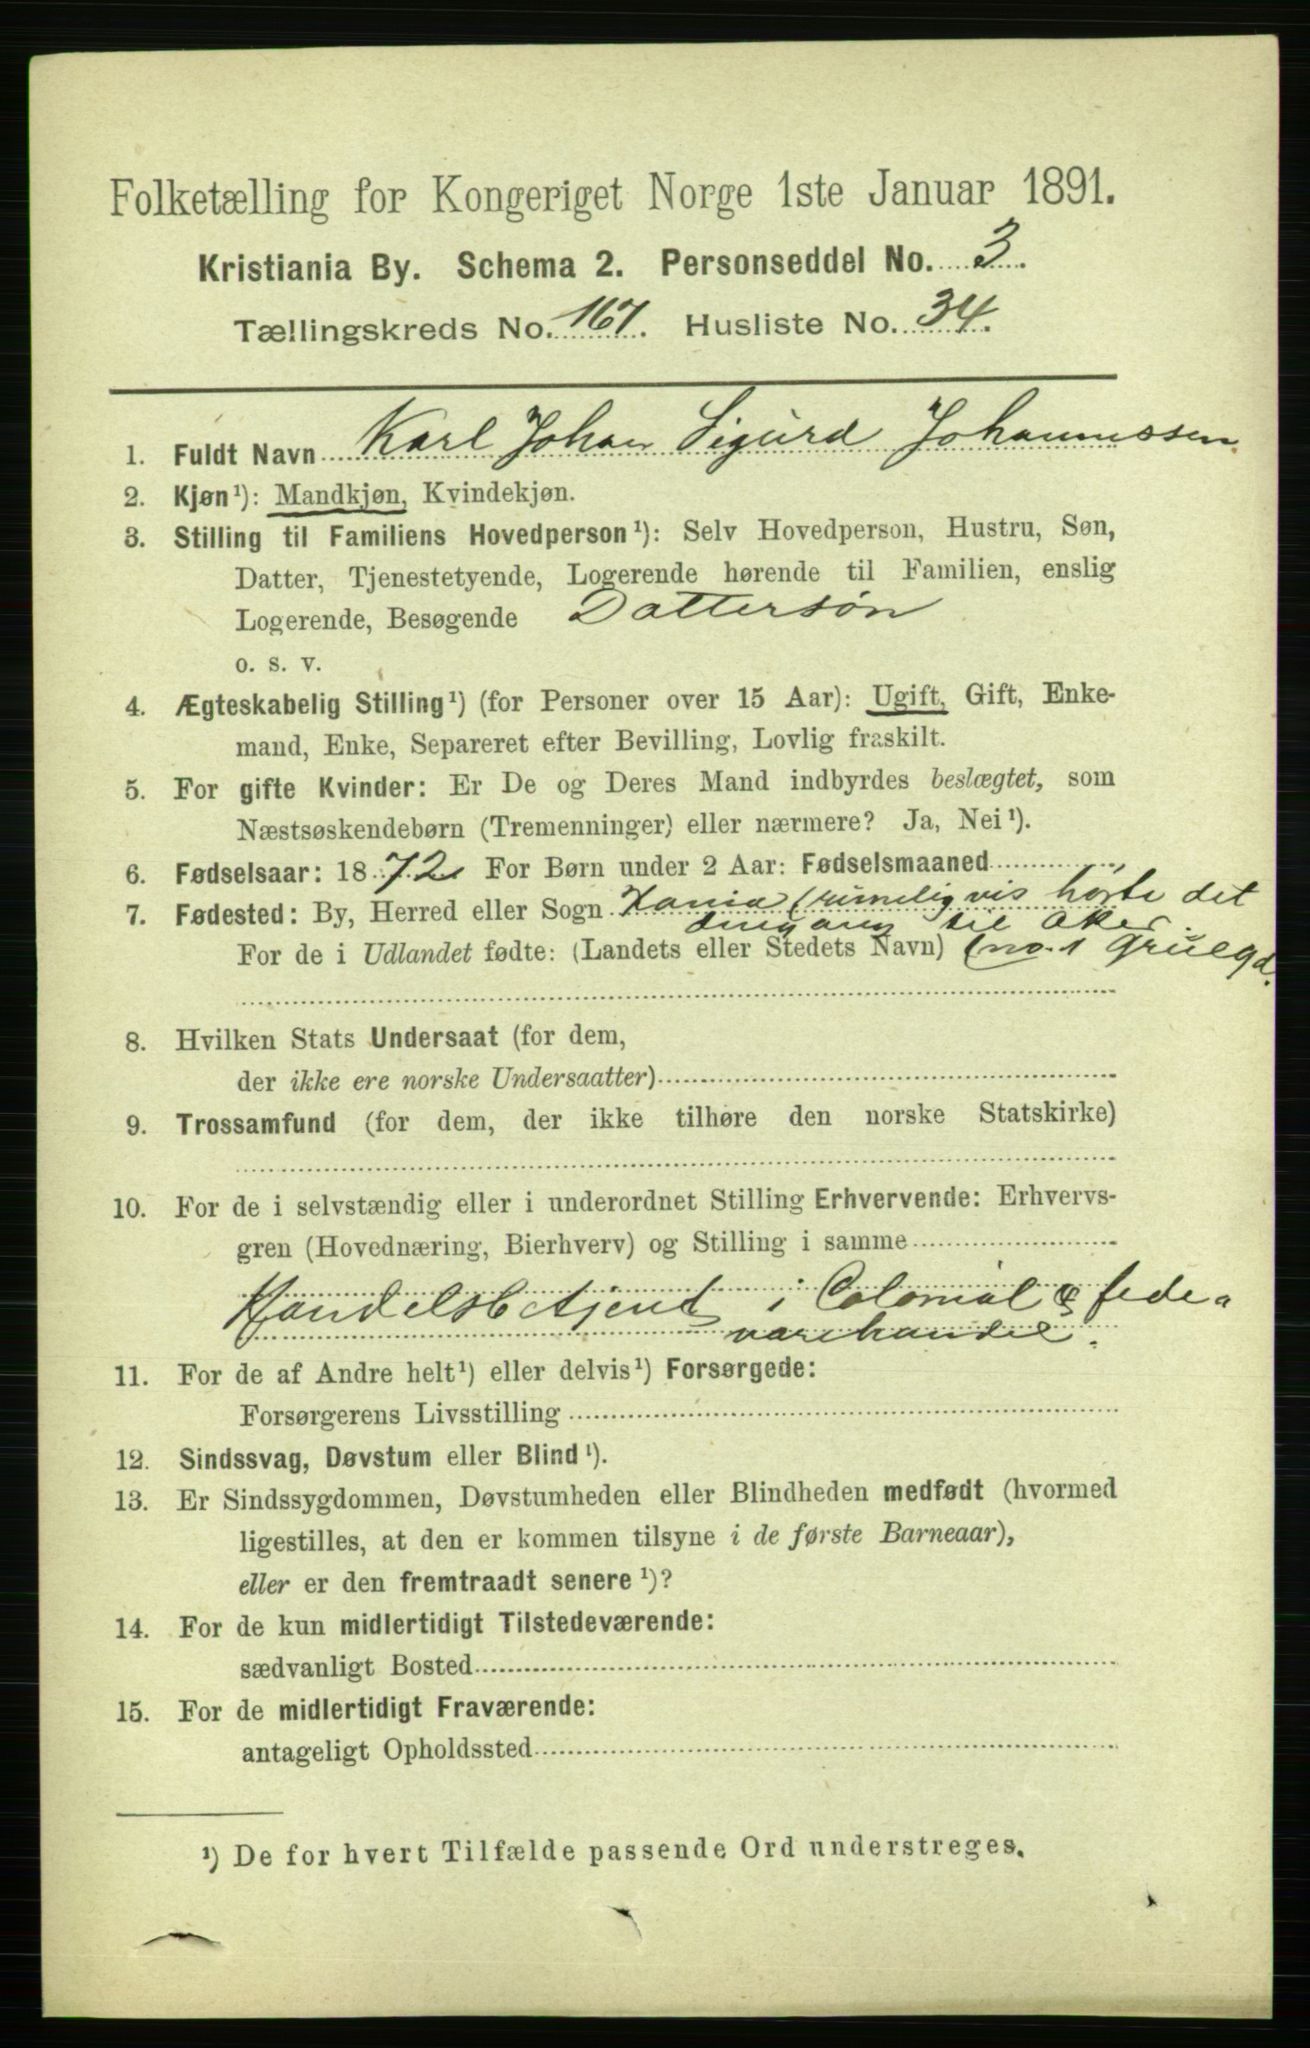 Folketælling for Kongeriget Norge 1ste Januar 1891.
Kristiania By. Schema 2. Personseddel No. 3.
Tællingskreds No. 167. Husliste No. 34.
1. Fuldt Navn Karl Johan Sigurd Johannessen.
2. Kjøn¹): Mandkjøn, Kvindekjøn.
3. Stilling til Familiens Hovedperson¹): Selv Hovedperson, Hustru, Søn,
Datter, Tjenestetyende, Logerende hørende til Familien, enslig
Logerende, Besøgende Dattersøn
o. s. v.
4. Ægteskabelig Stilling¹) (for Personer over 15 Aar): Ugift, Gift, Enke-
mand, Enke, Separeret efter Bevilling, Lovlig fraskilt.
5. For gifte Kvinder: Er De og Deres Mand indbyrdes beslægtet, som
Næstsøskendebørn (Tremenninger) eller nærmere? Ja, Nei¹).
6. Fødselsaar: 1872 For Børn under 2 Aar: Fødselsmaaned
7. Fødested: By, Herred eller Sogn Xania (rimeligvis hørte det
dengang til Aker.
For de i Udlandet fødte: (Landets eller Stedets Navn) (no. 1 Gruegd.
8. Hvilken Stats Undersaat (for dem,
der ikke ere norske Undersaatter)
9. Trossamfund (for dem, der ikke tilhøre den norske Statskirke)
10. For de i selvstændig eller i underordnet Stilling Erhvervende: Erhvervs-
gren (Hovednæring, Bierhverv) og Stilling i samme
Handelsbetjent i Colonial & fede-
varehandel.
11. For de af Andre helt¹) eller delvis¹) Forsørgede:
Forsørgerens Livsstilling
12. Sindssvag, Døvstum eller Blind¹).
13. Er Sindssygdommen, Døvstumheden eller Blindheden medfødt (hvormed
ligestilles, at den er kommen tilsyne i de første Barneaar),
eller er den fremtraadt senere¹)?
14. For de kun midlertidigt Tilstedeværende:
sædvanligt Bosted
15. For de midlertidigt Fraværende:
antageligt Opholdssted
¹) De for hvert Tilfælde passende Ord understreges.